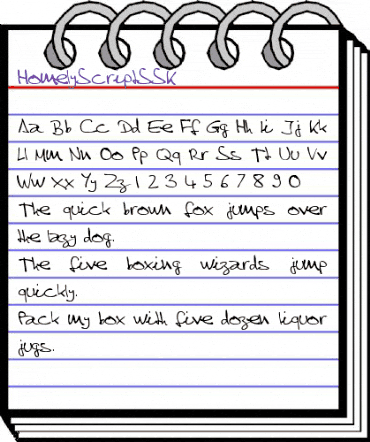 HomelyScriptSSK
Aa Bb Cc Dd Ee Ff Gg Hh Ii Jj Kk
Ll Mm Nn Oo Pp Qq Rr Ss Tt Uu Vv
Ww Xx Yy Zz 1 2 3 4 5 6 7 8 9 0
The quick brown fox jumps over
the lazy dog.
The five boxing wizards jump
quickly.
Pack my box with five dozen liquor
jugs.